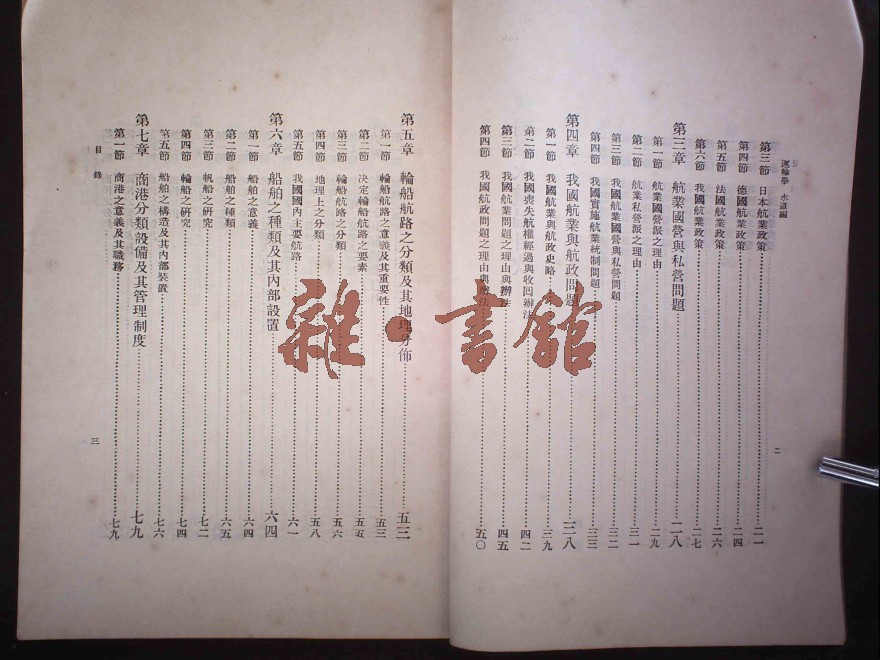 運輸學 水運編
二
第三節 日本航業政策 二一
第四節 德國航業政策 二四
第五節 法國航業政策 二六
第六節 我國航業政策 二七
第三章 航業國營與私營問題 二八
第一節 航業國營派之理由 二九
第二節 航業私營派之理由 三一
第三節 我國航業國營與私營問題 三二
第四節 我國實施航業統制問題 三三
第四章 我國航業與航政問題 三八
第一節 我國航業與航政史略 三九
第二節 我國喪失航權經過與收回辦法 四二
第三節 我國航業問題之理由與辦法 四五
第四節 我國航政問題之理由與辦法 五〇
第五章 輪船航路之分類及其地理分佈 五三
第一節 輪船航路之意義及其重要性 五三
第二節 決定輪船航路之要素 五五
第三節 輪船航路之分類 五六
第四節 地理上之分類 五八
第五節 我國國內主要航路 六一
第六章 船舶之種類及其內部設置 六四
第一節 船舶之意義 六四
第二節 船舶之種類 六五
第三節 帆船之研究 七二
第四節 輪船之研究 七四
第五節 船舶之構造及其內部裝置 七六
第七章 商港分類設備及其管理制度 七九
第一節 商港之意義及其職務 七九
目錄
三
雜·書館